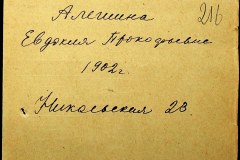 216
Алешина
Евдокия Прокофьевна
1902 г.
Никольская 23.